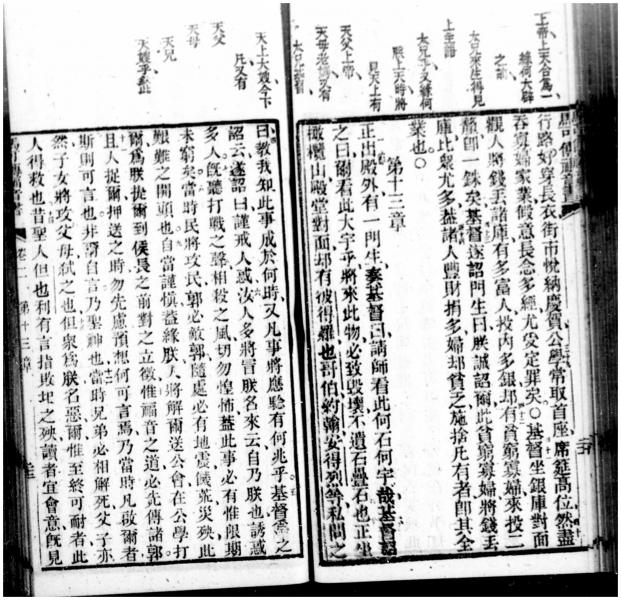 上帝上天合爲一
緣何大辟
之謂
太兄來生得見
上主語
太兄下又緣何
陞上天時將
見天上有
天父上帝
天母老媽又有
天上大媳今下
凡又有
天父
天母
天兄
天嫂乎欽此
馬可傳福音書
行路好穿長衣街市悅納慶賀公學常取首座席筵高位然盡
吞寡婦家業假意長念多經尤受定罪矣〇基督坐銀庫對面
觀人將錢丟諸庫有多富人投內多銀却有貧窮寡婦來投二
釐卽一銖矣基督遂詔門生曰朕誠詔爾此貧窮寡婦將錢丟
庫比衆尤多蓋諸人豐財捐多婦却貧乏施捨凡有者卽其全
業也〇
第十三章
正出殿外有一門生奏基督曰請師看此何石何宇哉基督詔
之曰爾看此大宇乎將來此物必致毀壞不遺石疊石也正坐
橄欖山殿堂對面却有彼得羅也哥伯約翰安得烈等私問之
曰教我知此事成於何時又凡事將應驗有何兆乎基督耶之
詔云遂詔曰謹戒人惑汝人多將冒朕名來云自乃朕也誘惑
多人旣聽打戰之聲相殺之風切勿惶怖蓋此事必有惟限期
未窮矣當時民將攻民郭必敵郭隨處必有地震饑荒災殃此
艱難之開頭也自當謹愼蓋緣朕人將解爾送公會在公學打
爾爲朕捉爾到侯長之前對之立徵惟福音之道必先傳諸郭
且人捉爾押送之時勿先慮預想何可言焉乃當時凡啟爾者
斯則可言也非謂自言乃聖神也當時兄弟必相解死父子亦
然子女將攻父母弒之也俱衆爲朕名惡爾惟至終可耐者此
人得救也昔聖人但也利有言指敗圯之殃讀者宜會意旣見
馬可傳福音書 卷二 第十三章